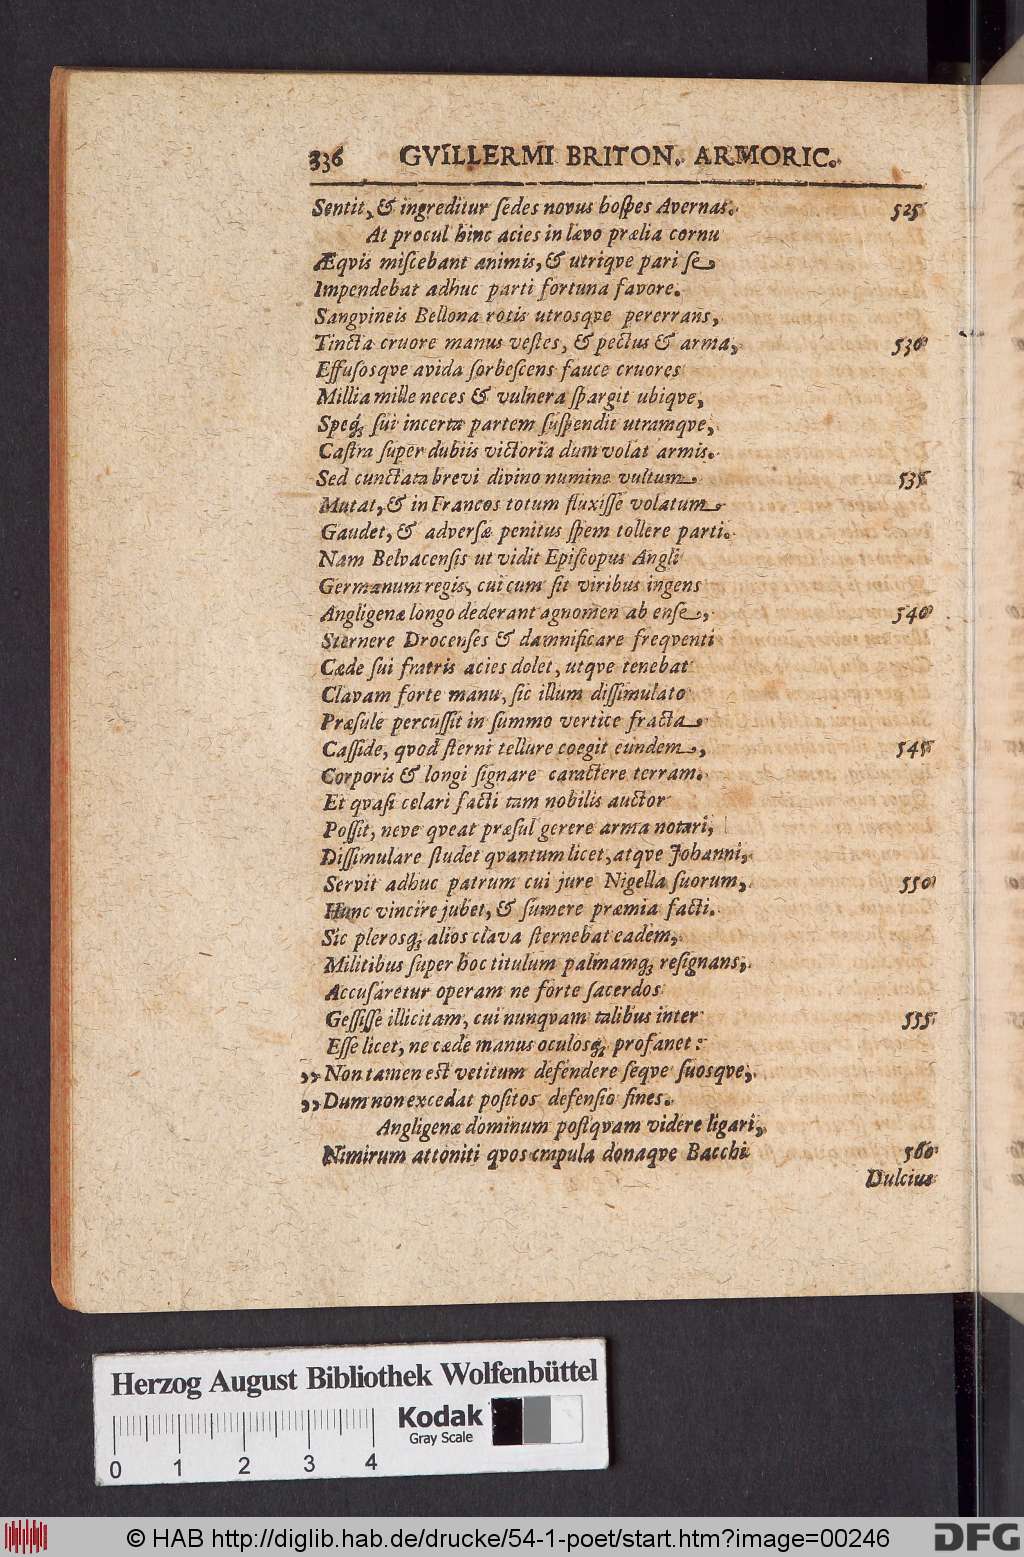 336 GVILLERMI BRITON. ARMORIC.
Sentit, & ingreditur ſedes novus hoſpes Avernas. 525
At procul hinc acies in lævo prælia cornu
Æqvis miſcebant animis, & utriqve pari ſe
Impendebat adhuc parti fortuna favore.
Sangvineis Bellona rotis utrosqve pererrans,
Tincta cruore manus veſtes, & pectus & arma, 530
Effuſosqve avida ſorbeſcens fauce cruores
Millia mille neces & vulnera ſpargit ubiqve,
Speq́; ſui incerta partem ſuſpendit utramqve,
Caſtra ſuper dubiis victoria dum volat armis.
Sed cunctata brevi divino numine vultum 535
Mutat, & in Francos totum fluxiſſe volatum
Gaudet, & adverſæ penitus ſpem tollere parti.
Nam Belvacenſis ut vidit Epiſcopus Angli
Germanum regis, cui cum ſit viribus ingens
Angligenæ longo dederant agnomen ab enſe, 540
Sternere Drocenſes & damnificare freqventi
Cæde ſui fratris acies dolet, utqve tenebat
Clavam forte manu, ſic illum diſſimulato
Præſule percuſſit in ſummo vertice fracta
Caſſide, qvod ſterni tellure coegit eundem, 545
Corporis & longi ſignare caractere terram.
Et qvaſi celari facti tam nobilis auctor
Poſſit, neve qveat præſul gerere arma notari,
Diſſimulare ſtudet qvantum licet, atqve Johanni,
Servit adhuc patrum cui jure Nigella ſuorum, 550
Hunc vincire jubet, & ſumere præmia facti.
Sic plerosq́; alios clava ſternebat eadem,
Militibus ſuper hoc titulum palmamq́; reſignans,
Accuſaretur operam ne forte ſacerdos
Geſſiſſe illicitam, cui nunqvam talibus inter 555
Eſſe licet, ne cæde manus oculosq́; profanet:
„ Non tamen eſt vetitum defendere ſeqve ſuosqve,
„ Dum non excedat poſitos defenſio fines.
Angligenæ dominum poſtqvam videre ligari,
Nimirum attoniti qvos crapula donaqve Bacchi 560
Dulcius
Herzog August Bibliothek Wolfenbüttel
Kodak
Gray Scale
0 1 2 3 4
© HAB http://diglib.hab.de/drucke/54-1-poet/start.htm?image=00246
DFG